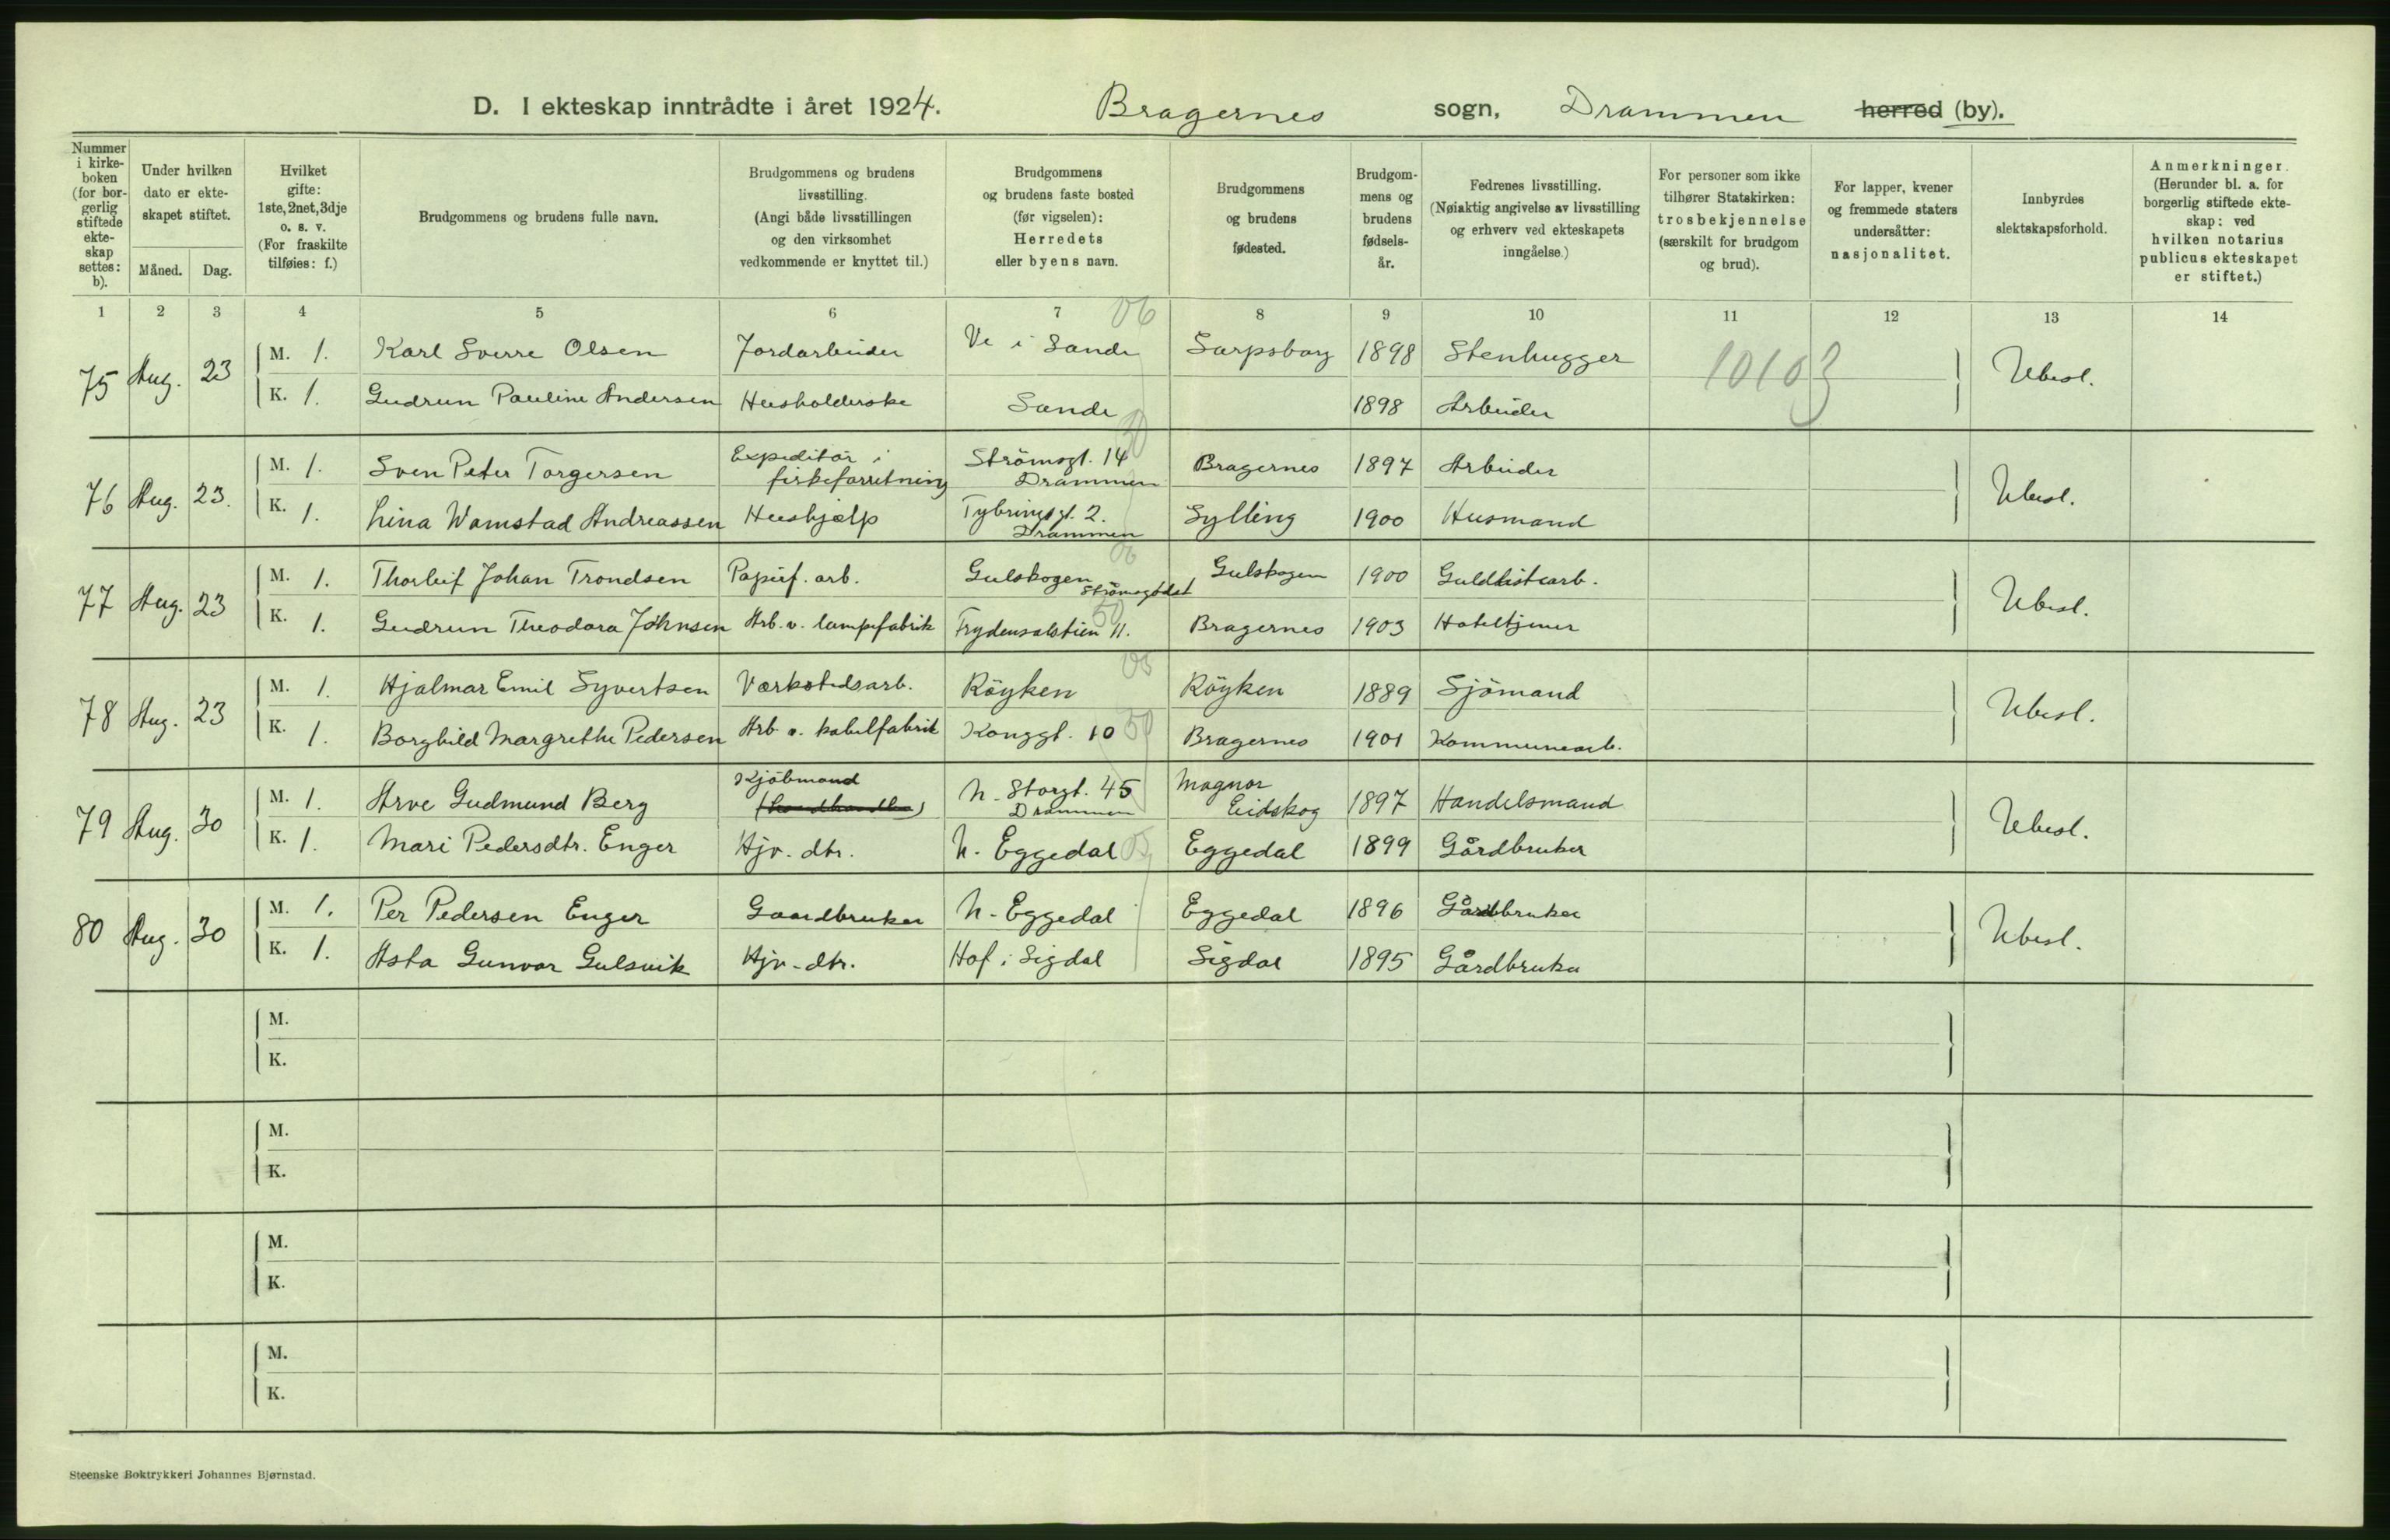 D. I ekteskap inntrådte i året 1924. Bragernes sogn, Drammen herred (by).
Nummer i kirkeboken (for borgerlig stiftede ekteskap settes: b).
Under hvilken dato er ekteskapet stiftet.
Måned. Dag.
Hvilket gifte: 1ste, 2net, 3dje o. s. v. (For fraskilte tilføies: f.)
Brudgommens og brudens fulle navn.
Brudgommens og brudens livsstilling. (Angi både livsstillingen og den virksomhet vedkommende er knyttet til.)
Brudgommens og brudens faste bosted (før vigselen): Herredets eller byens navn.
Brudgommens og brudens fødested.
Brudgommens og brudens fødselsår.
Fedrenes livsstilling. (Nøiaktig angivelse av livsstilling og erhverv ved ekteskapets inngåelse.)
For personer som ikke tilhører Statskirken: trosbekjennelse (særskilt for brudgom og brud).
For lapper, kvener og fremmede staters undersåtter: nasjonalitet.
Innbyrdes slektskapsforhold.
Anmerkninger. (Herunder bl. a. for borgerlig stiftede ekteskap: ved hvilken notarius publicus ekteskapet er stiftet.)
1 2 3 4 5 6 7 8 9 10 11 12 13 14
06
75 Aug. 23 M. 1. Karl Sverre Olsen Jordarbeider Ve i Sande Sarpsborg 1898 Stenhugger 10103 Ubesl.
K. 1. Gudrun Pauline Andersen Husholderske Sande 1898 Arbeider
30
76 Aug. 23. M. 1. Sven Peter Torgersen Expeditør i fiskeforretning Strömsgt. 14 Drammen Bragernes 1897 Arbeider Ubesl.
K. 1. Lina Wamstad Andreassen Hushjælp Tybringsgt. 2. Drammen Sylling 1900 Husmand
06
77 Aug. 23 M. 1. Thorleif Johan Trondsen Papirf. arb. Gulskogen Strömsgodset Gulskogen 1900 Guldlistearb. Ubesl.
50
K. 1. Gudrun Theodora Johnsen Arb. v. lampefabrik Frydensalstien 11. Bragernes 1903 Hoteltjener
05
78 Aug. 23 M. 1. Hjalmar Emil Syvertsen Værkstedsarb. Röyken Röyken 1889 Sjömand Ubesl.
K. 1. Borghild Margrethe Pedersen Arb. v. kabelfabrik Konggt. 10 50 Bragernes 1901 Kommunearb.
79 Aug. 30 M. 1. Arve Gudmund Berg Kjöbmand N. Storgt. 45 Drammen Magnor Eidskog 1897 Handelsmand Ubesl.
K. 1. Mari Pedersdtr. Enger Hjv. dtr. N. Eggedal 05 Eggedal 1899 Gårdbruker
80 Aug. 30 M. 1. Per Pedersen Enger Gaardbruker N. Eggedal Eggedal 1896 Gårdbruker Ubesl.
K. 1. Asta Gunvor Gulsvik Hjv. dtr. Hof i Sigdal Sigdal 1895 Gårdbruker
M.
K.
M.
K.
M.
K.
M.
K.
Steenske Boktrykkeri Johannes Bjørnstad.